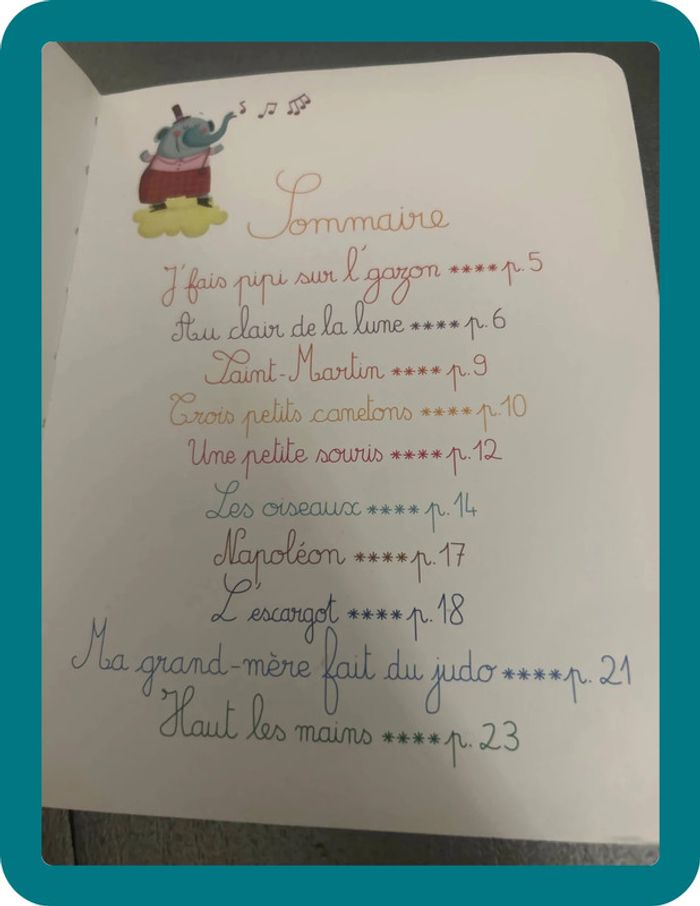 Sommaire
J'fais pipi sur l'gazon ****p.5
Au clair de la lune ****p.6
Saint-Martin ****p.9
Trois petits canetons ****p.10
Une petite souris ****p.12
Les oiseaux ****p.14
Napoléon ****p.17
L'escargot ****p.18
Ma grand-mère fait du judo ****p.21
Haut les mains ****p.23